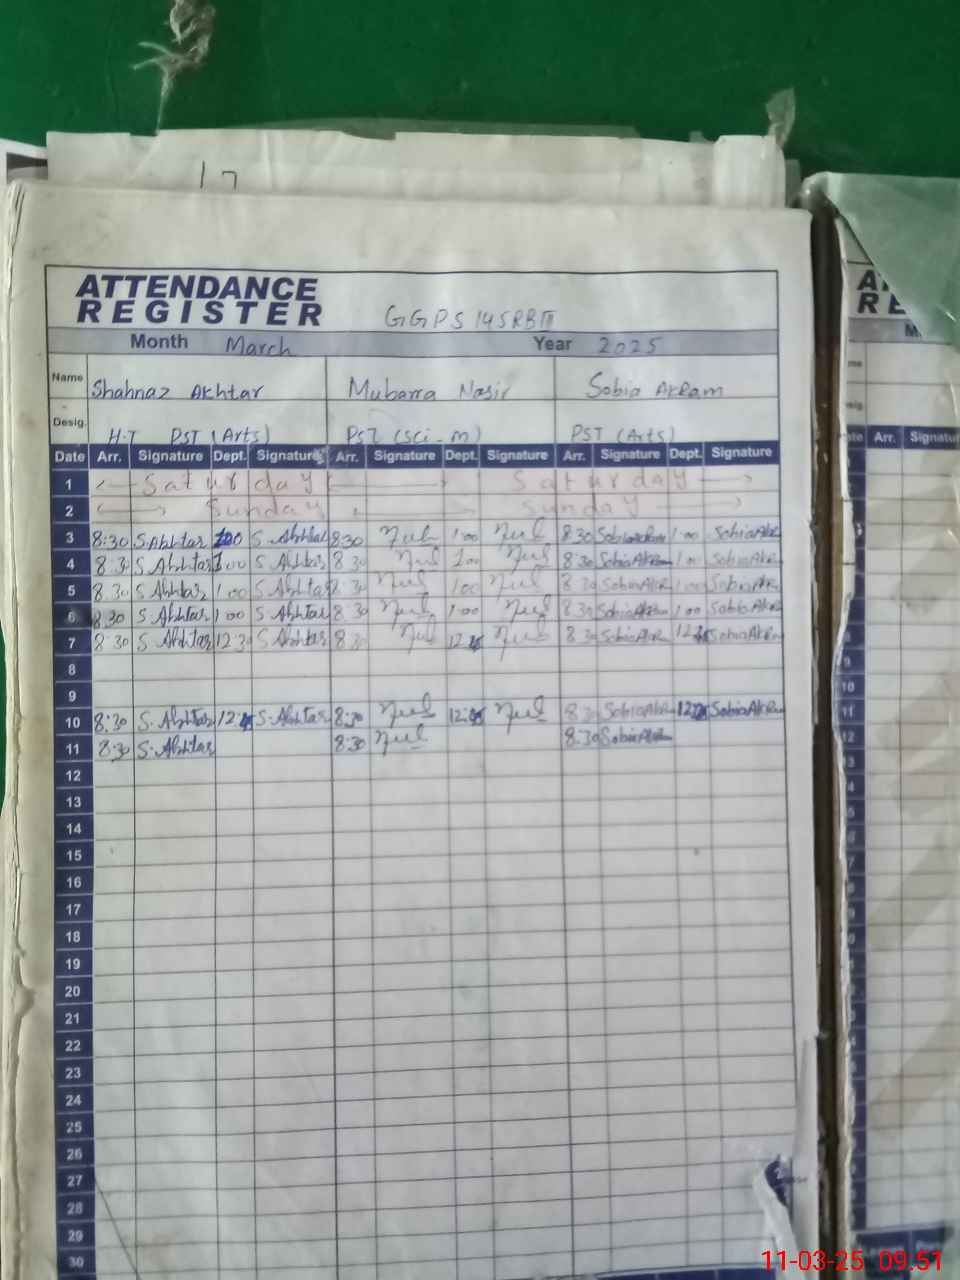 17
ATTENDANCE
REGISTER GGPS 145RBIII
Month March Year 2025
Name Shahnaz Akhtar Mubarra Nasir Sobia Akram
Desig. H.T PST (Arts) PST (Sci-m) PST (Arts)
Date Arr. Signature Dept. Signature Arr. Signature Dept. Signature Arr. Signature Dept. Signature
1 Saturday Saturday
2 Sunday Sunday
3 8:30 S.Akhtar 1:00 S.Akhtar 8:30 1:00 8:30 Sobia Akram 1:00 Sobia Akram
4 8:30 S.Akhtar 1:00 S.Akhtar 8:30 1:00 8:30 Sobia Akram 1:00 Sobia Akram
5 8:30 S.Akhtar 1:00 S.Akhtar 8:30 1:00 8:30 Sobia Akram 1:00 Sobia Akram
6 8:30 S.Akhtar 1:00 S.Akhtar 8:30 1:00 8:30 Sobia Akram 1:00 Sobia Akram
7 8:30 S.Akhtar 12:30 S.Akhtar 8:30 8:30 Sobia Akram Sobia Akram
8
9
10 8:30 S.Akhtar S.Akhtar 8:30 8:30 Sobia Akram Sobia Akram
11 8:30 S.Akhtar 8:30 8:30 Sobia Akram
12
13
14
15
16
17
18
19
20
21
22
23
24
25
26
27
28
29
30
Arr. Signatu
11-03-25 09.51